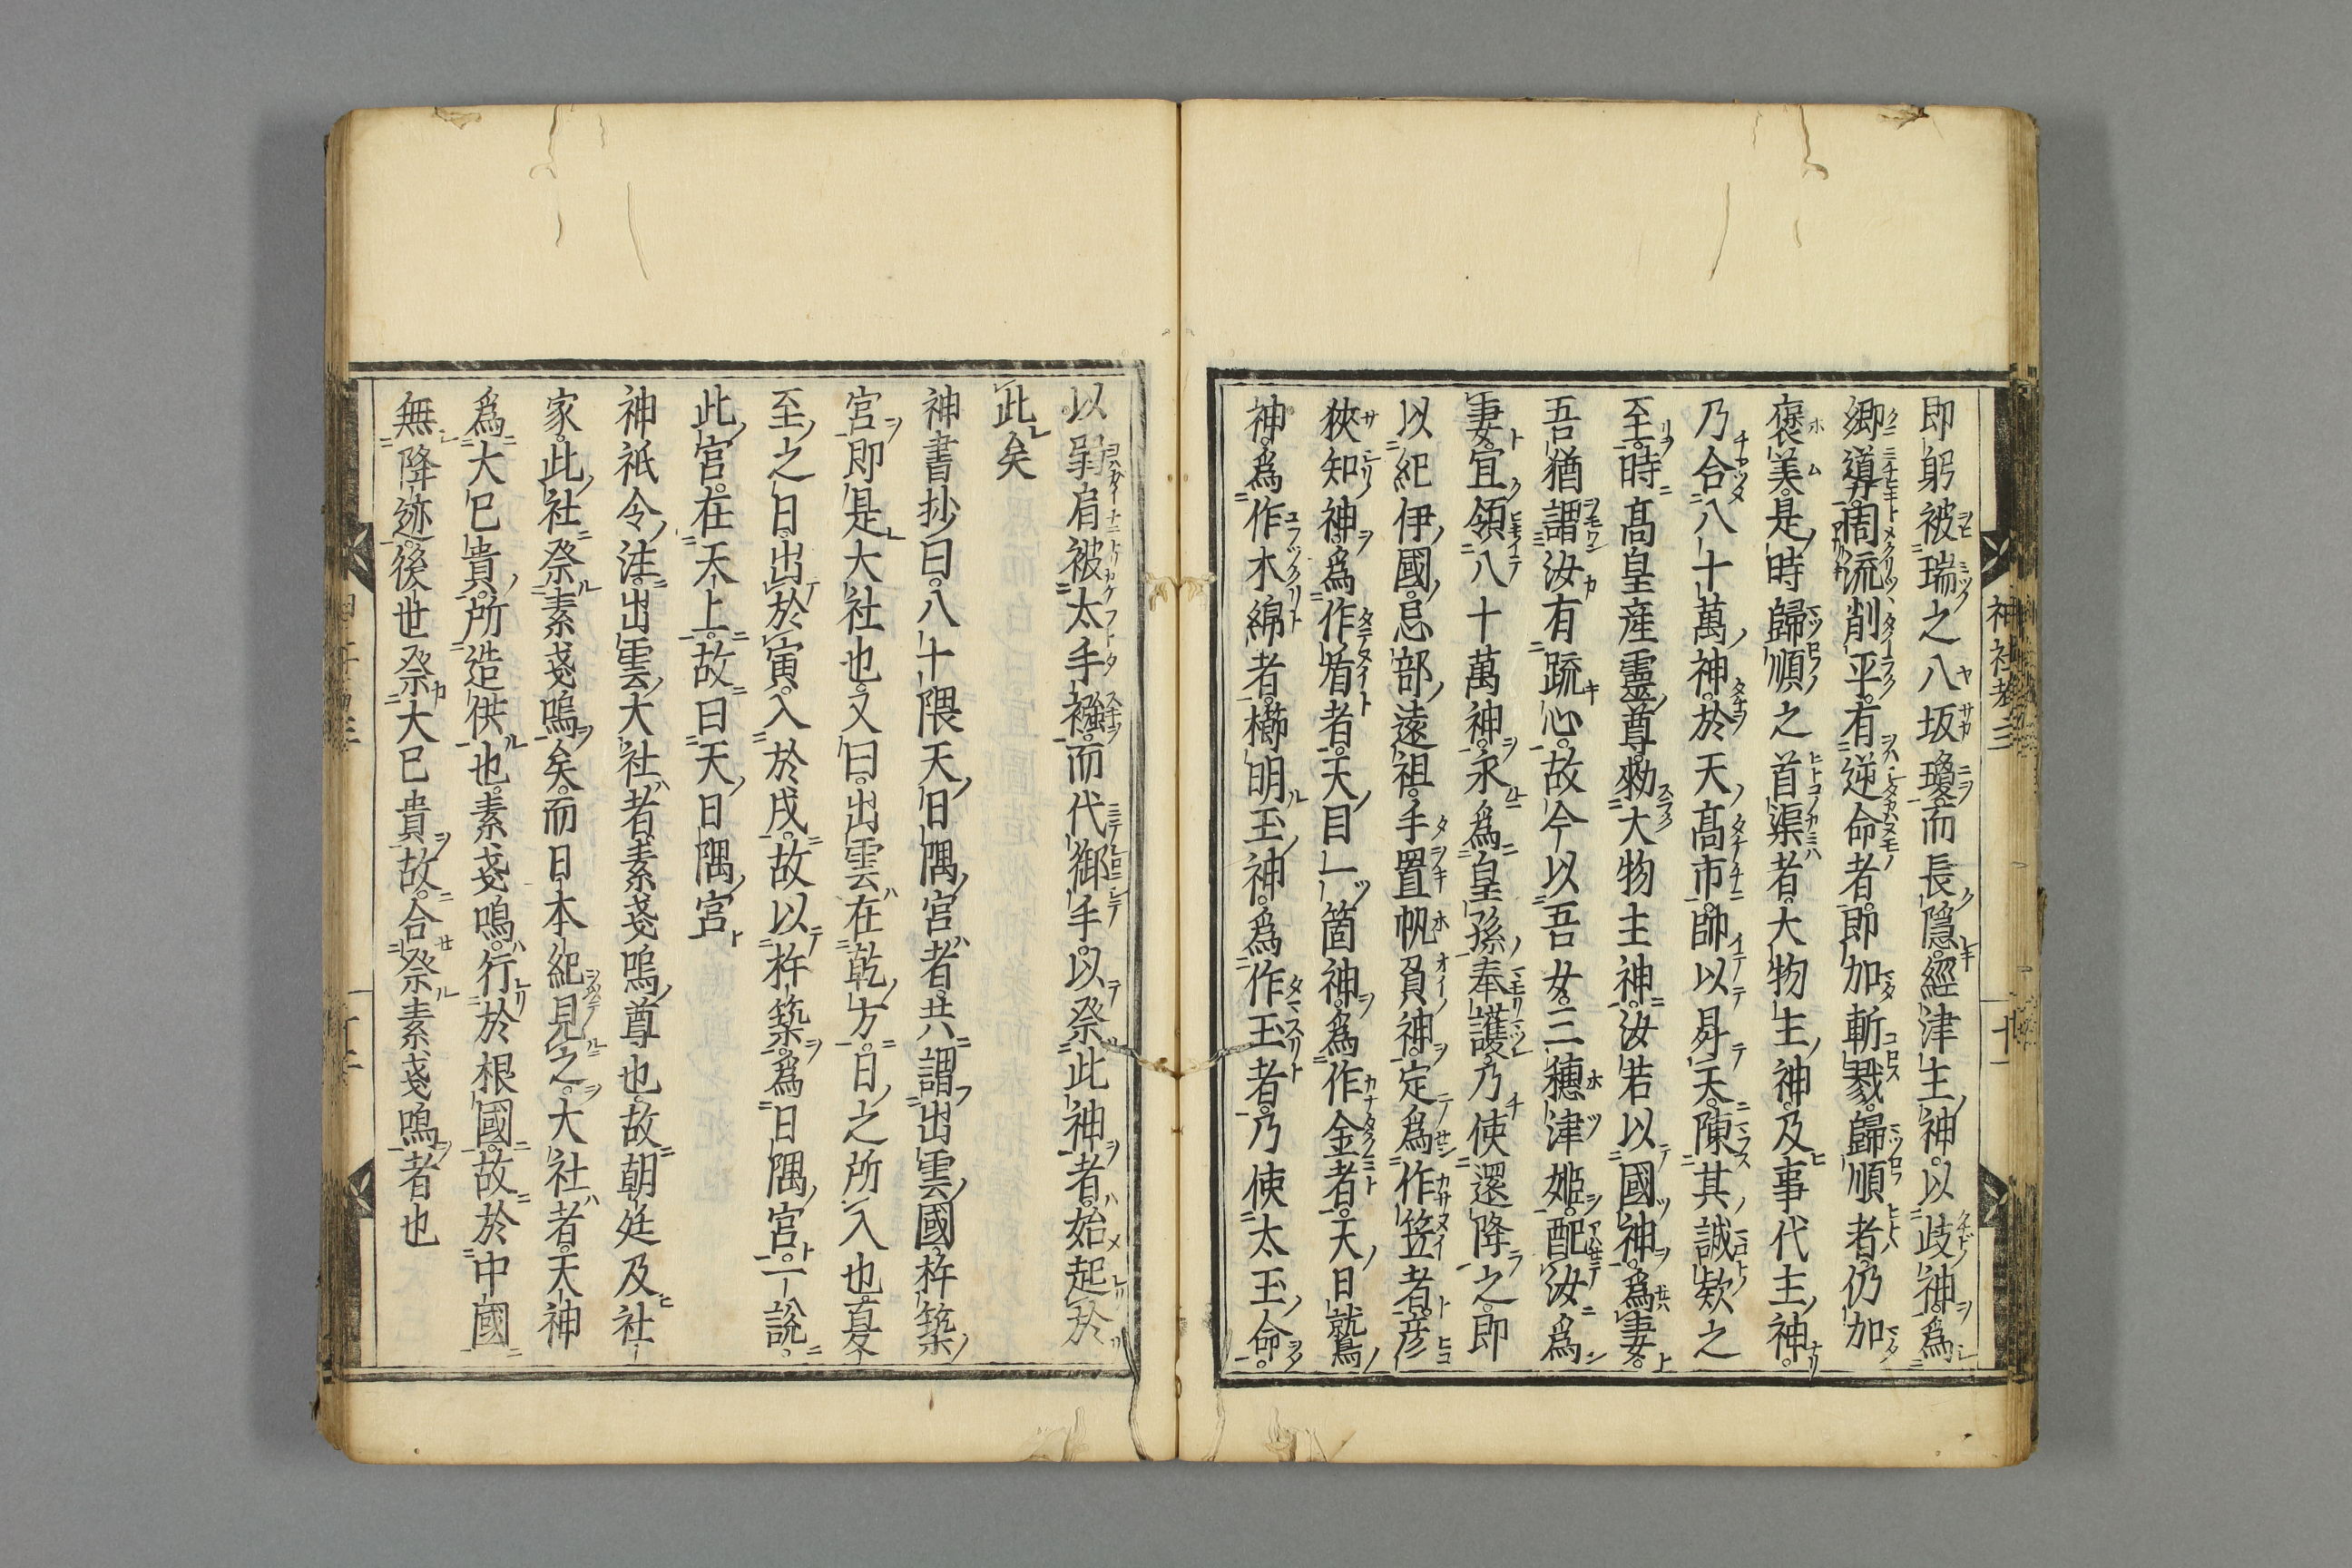 即躬被瑞之八坂瓊而長隱。經津主神。以岐神。爲
郷導。周流削平。有逆命者。即加斬戮。歸順者。仍加
褒美。是時歸順之首渠者。大物主神。及事代主神。
乃合八十萬神。於天高市。帥以昇天。陳其誠欵之
至。時高皇産靈尊。勑大物主神。汝若以國神。爲妻。
吾猶謂汝有疏心。故今以吾女。三穗津姫。配汝爲
妻。宜領八十萬神。永爲皇孫奉護。乃使還降之。即
以紀伊國。忌部遠祖。手置帆負神。定爲作笠者。彦
狹知神。爲作盾者。天目一箇神。爲作金者。天日鷲
神。爲作木綿者。櫛明玉神。爲作玉者。乃使太玉命。
神社考三
十一
以弱肩被太手襁。而代御手。以祭此神者。始起於
此矣
神書抄曰。八十隈天日隅宮者。共謂出雲國。杵築
宮。即是大社也。又曰。出雲在乾方。日之所入也。夏
至之日。出於寅。入於戌。故以杵築。爲日隅宮。一說。
此宮。在天上。故曰天日隅宮
神祇令注。出雲大社者。素戔嗚尊也。故朝廷及社
家。此社祭素戔嗚矣。而日本紀見之。大社者。天神
爲大已貴。所造供也。素戔嗚。行於根國。故於中國
無降迹。後世祭大已貴。故。合祭素戔嗚者也